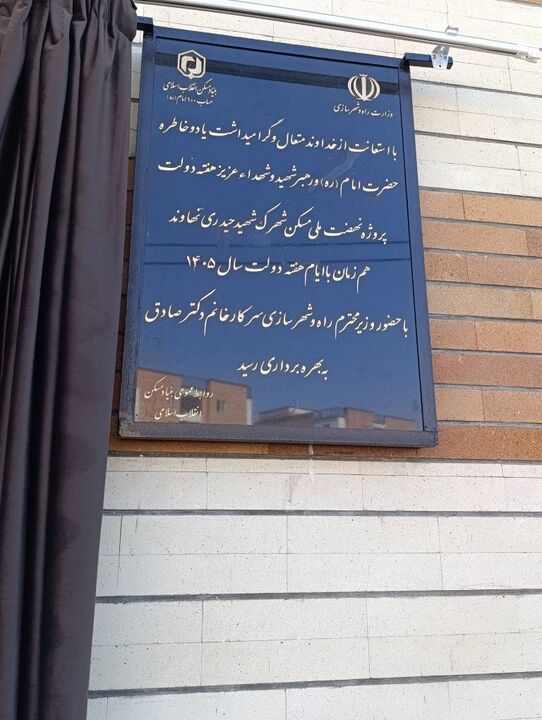 بنیاد مسکن انقلاب اسلامی
حساب ۱۰۰ امام (ره)
وزارت راه و شهرسازی
با استعانت از خداوند متعال و گرامیداشت یاد و خاطره
حضرت امام (ره) و رهبر شهید و شهداء عزیز هفته دولت
پروژه نهضت ملی مسکن شهرک شهید حیدری نهاوند
هم زمان با ایام هفته دولت سال ۱۴۰۵
با حضور وزیر محترم راه و شهرسازی سرکار خانم دکتر صادق
به بهره برداری رسید
روابط عمومی بنیاد مسکن
انقلاب اسلامی